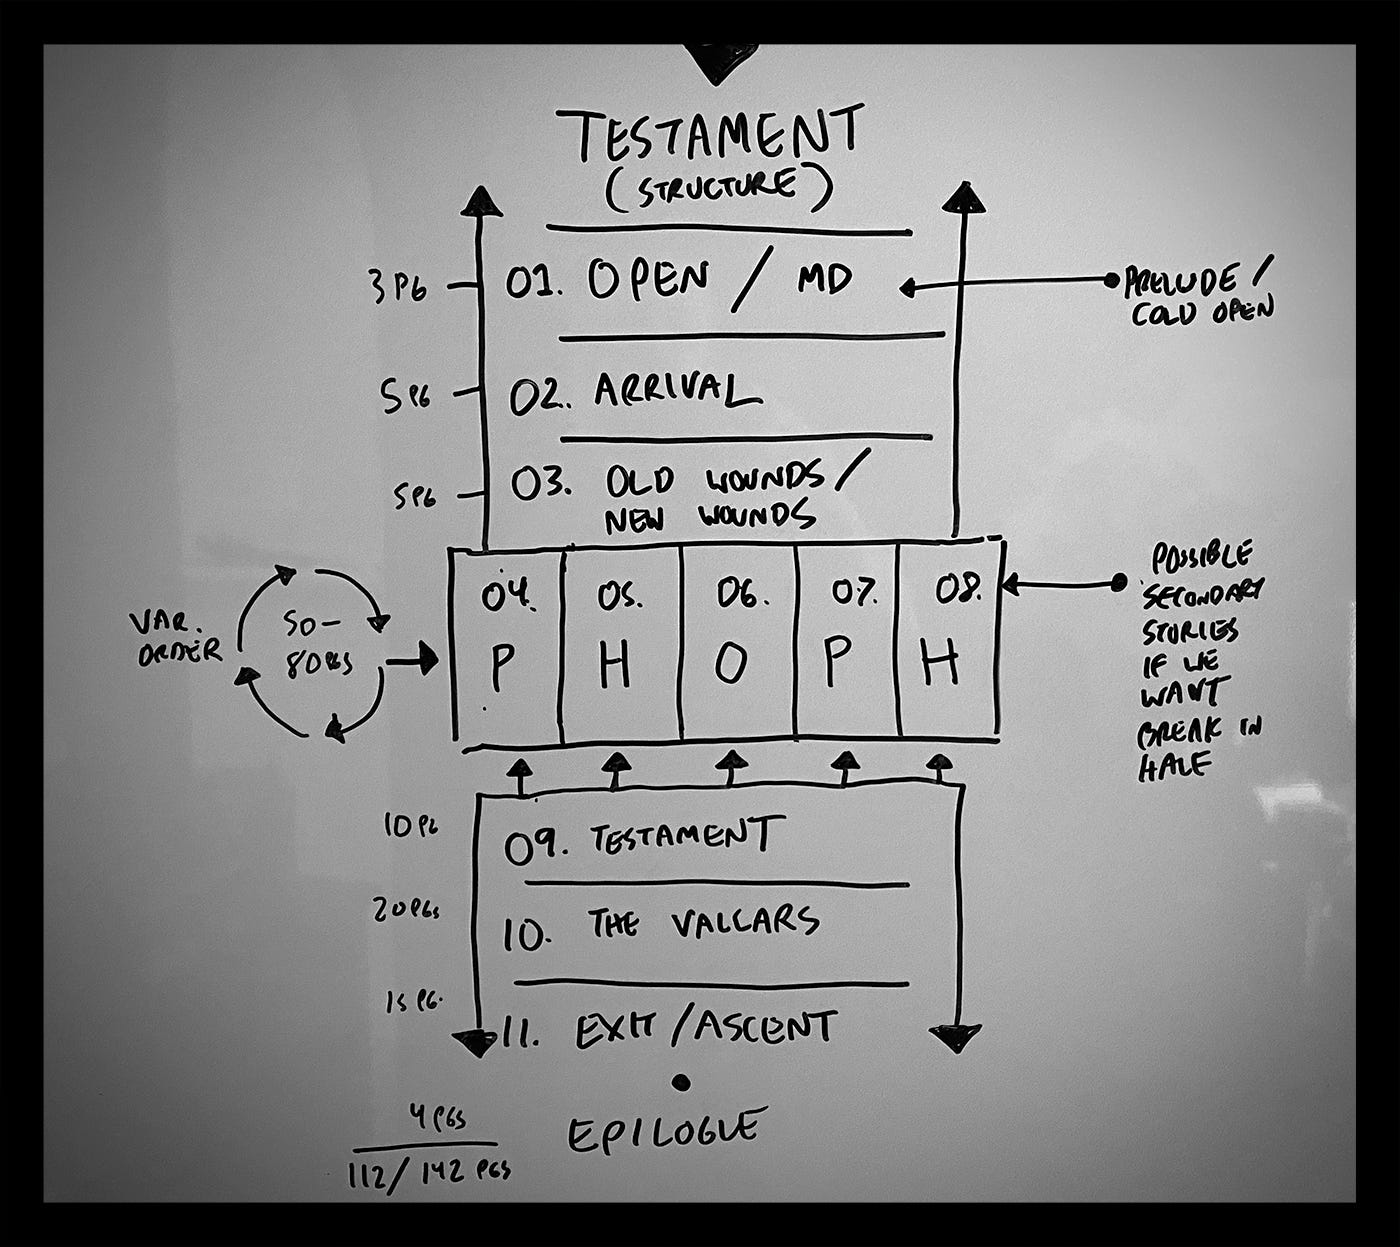 TESTAMENT
(STRUCTURE)
3 PG
01. OPEN / MD
PRELUDE /
COLD OPEN
5 PG
02. ARRIVAL
5 PG
03. OLD WOUNDS /
NEW WOUNDS
VAR.
ORDER
50-
80 PGS
04.
P
05.
H
06.
O
07.
P
08.
H
POSSIBLE
SECONDARY
STORIES
IF WE
WANT
BREAK IN
HALF
10 PG
09. TESTAMENT
20 PGS
10. THE VALLARS
15 PG.
11. EXIT / ASCENT
4 PGS
EPILOGUE
112 / 142 PGS